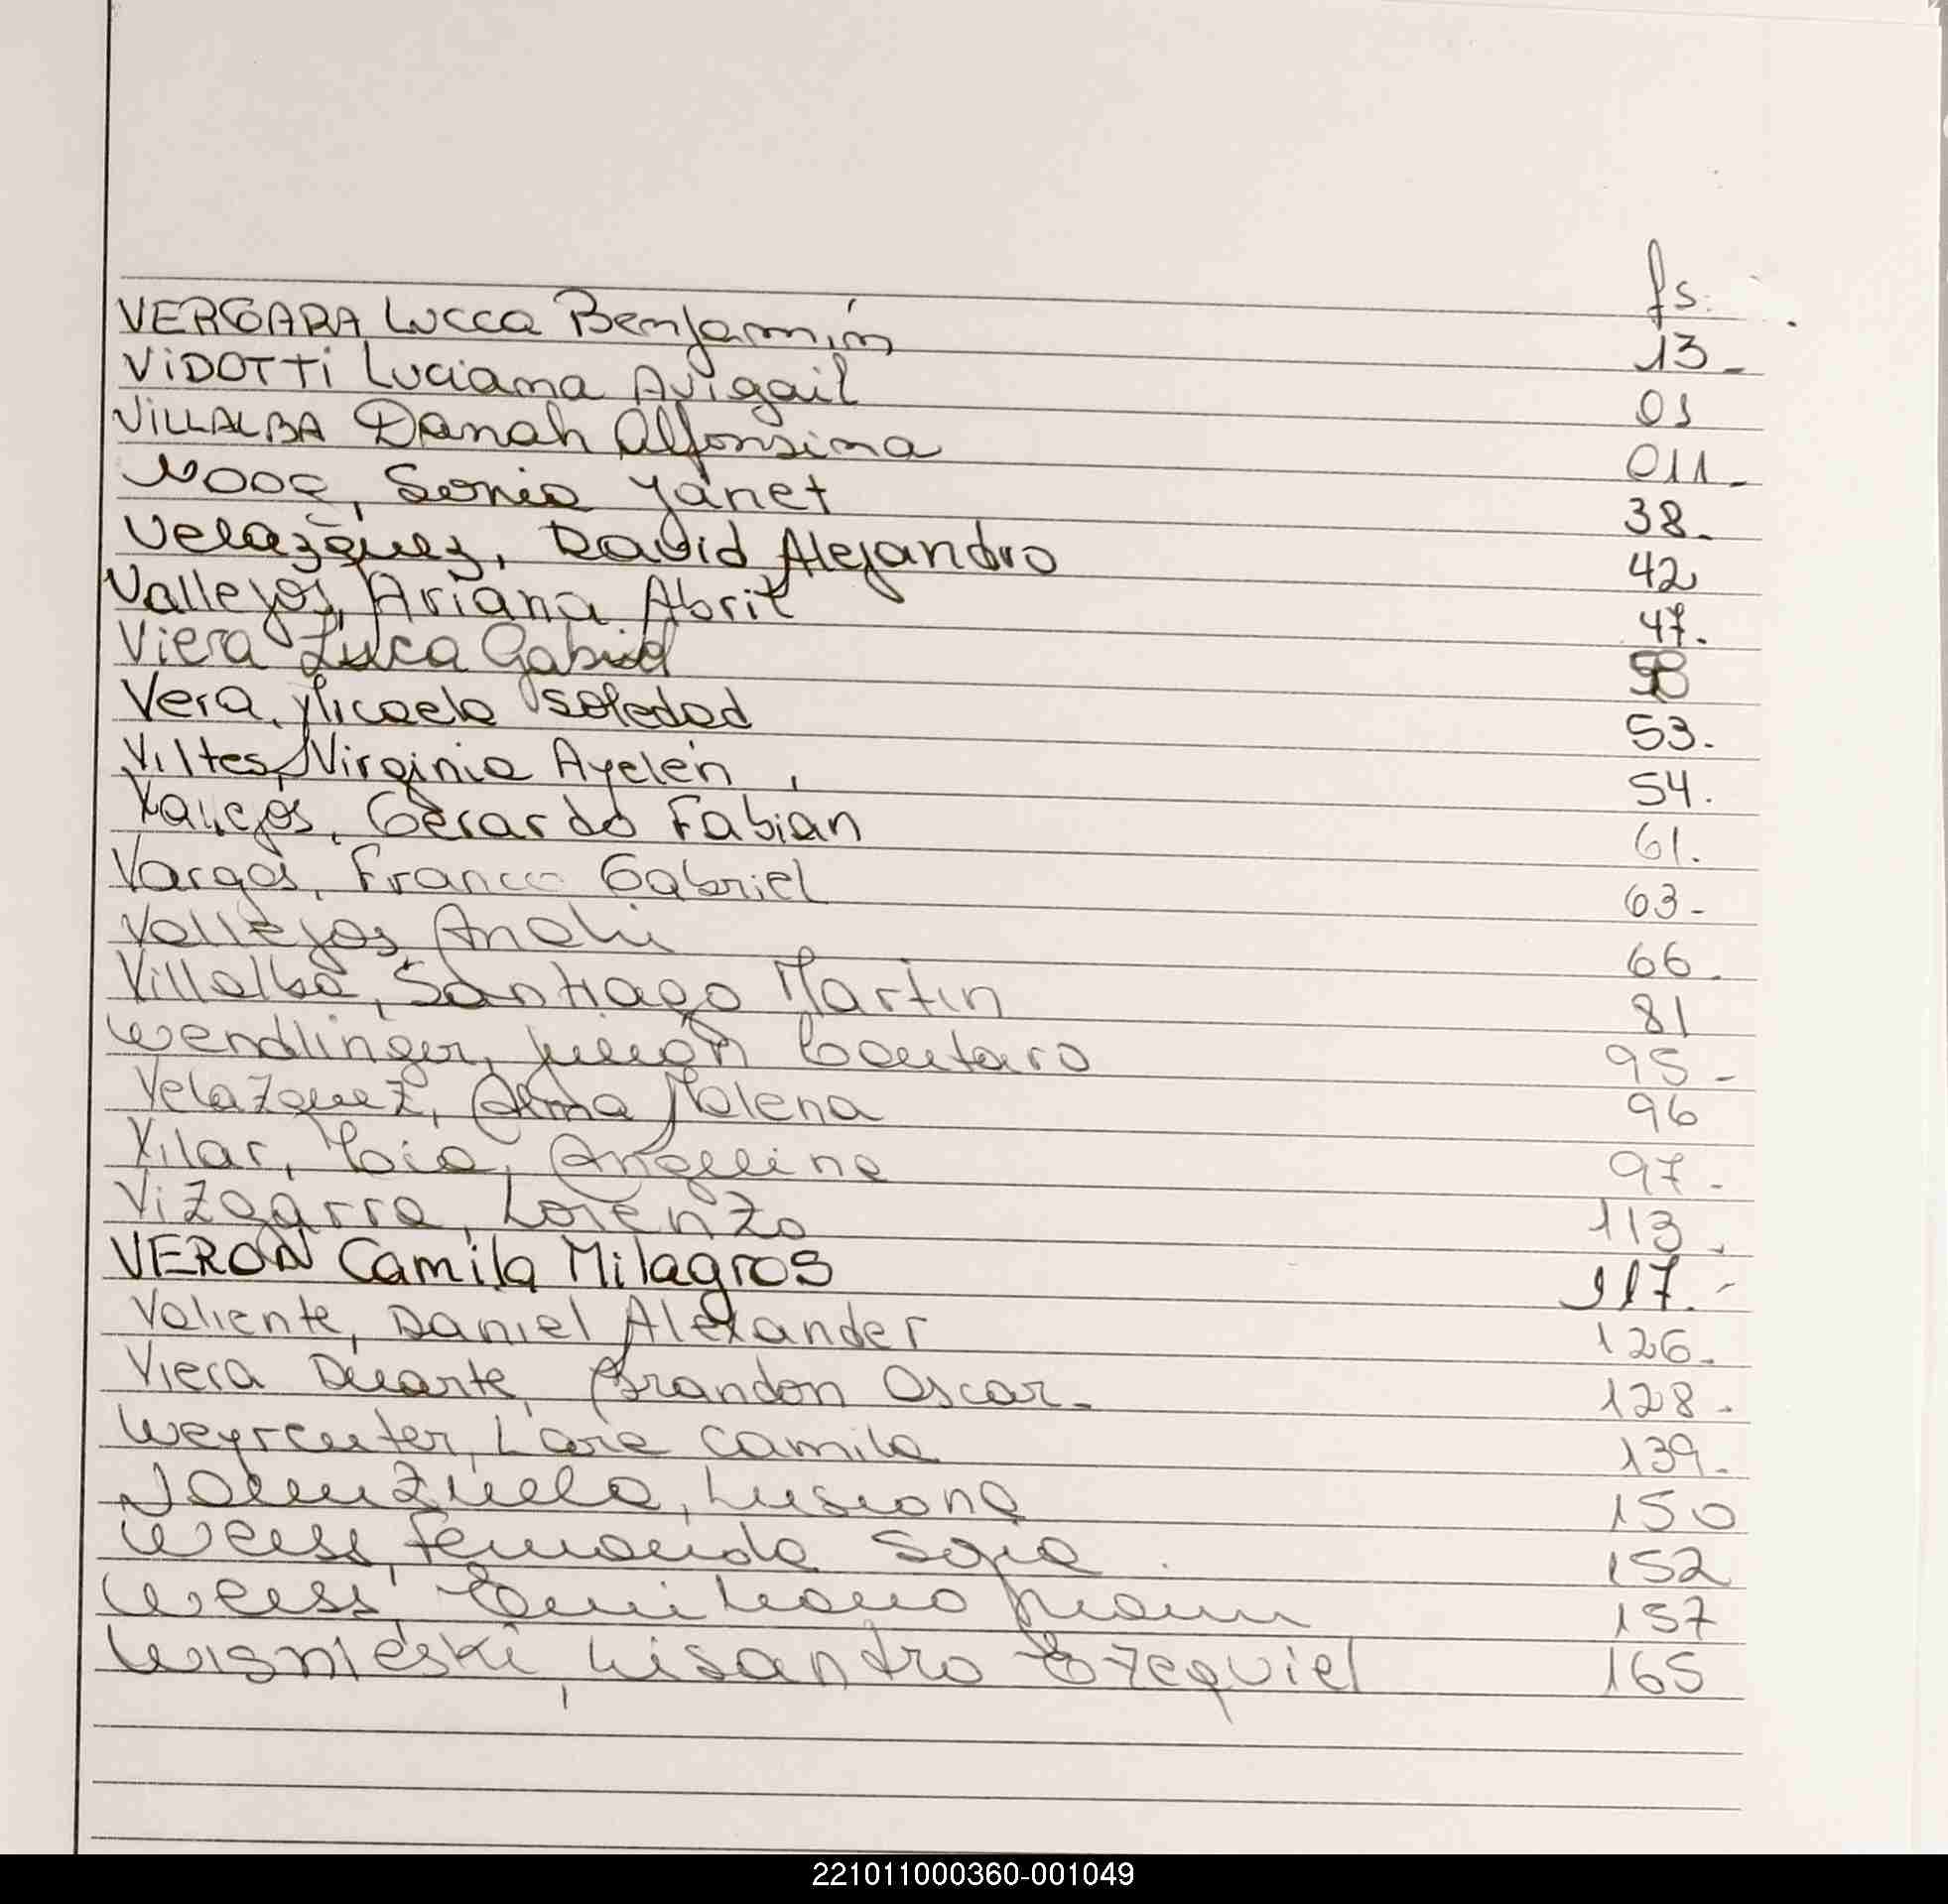 fs.
VERGARA Lucca Benjamín 13-
VIDOTTI Luciana Avigail 01
VILLALBA Danah Alfonsina 011-
Sonia Yanet 38-
Velazquez, David Alejandro 42
Vallejos, Ariana Abril 47.
Viera Luca Gabriel
Vera, Micaela Soledad 53.
Viltes, Virginia Ayelén 54.
Vallejos, Gerardo Fabian 61.
Vargas, Franco Gabriel 63-
Vallejos, Anahi 66.
Villalba, Santiago Martin 81
Wendlinger, Julián Lautaro 95-
Velazquez, Alma Malena 96
Vilar, Angelina 97-
Vizgarra, Lorenzo 113.
VERON Camila Milagros 117.-
Valiente, Daniel Alexander 126.
Viera Duarte, Brandon Oscar- 128.
Weyreuter, Lara Camila 139.
Valenzuela, Lusiana 150
Weiss, Fernanda Sofia 152
Weiss Emiliano 157
Wisnieski, Lisandro Ezequiel 165
221011000360-001049